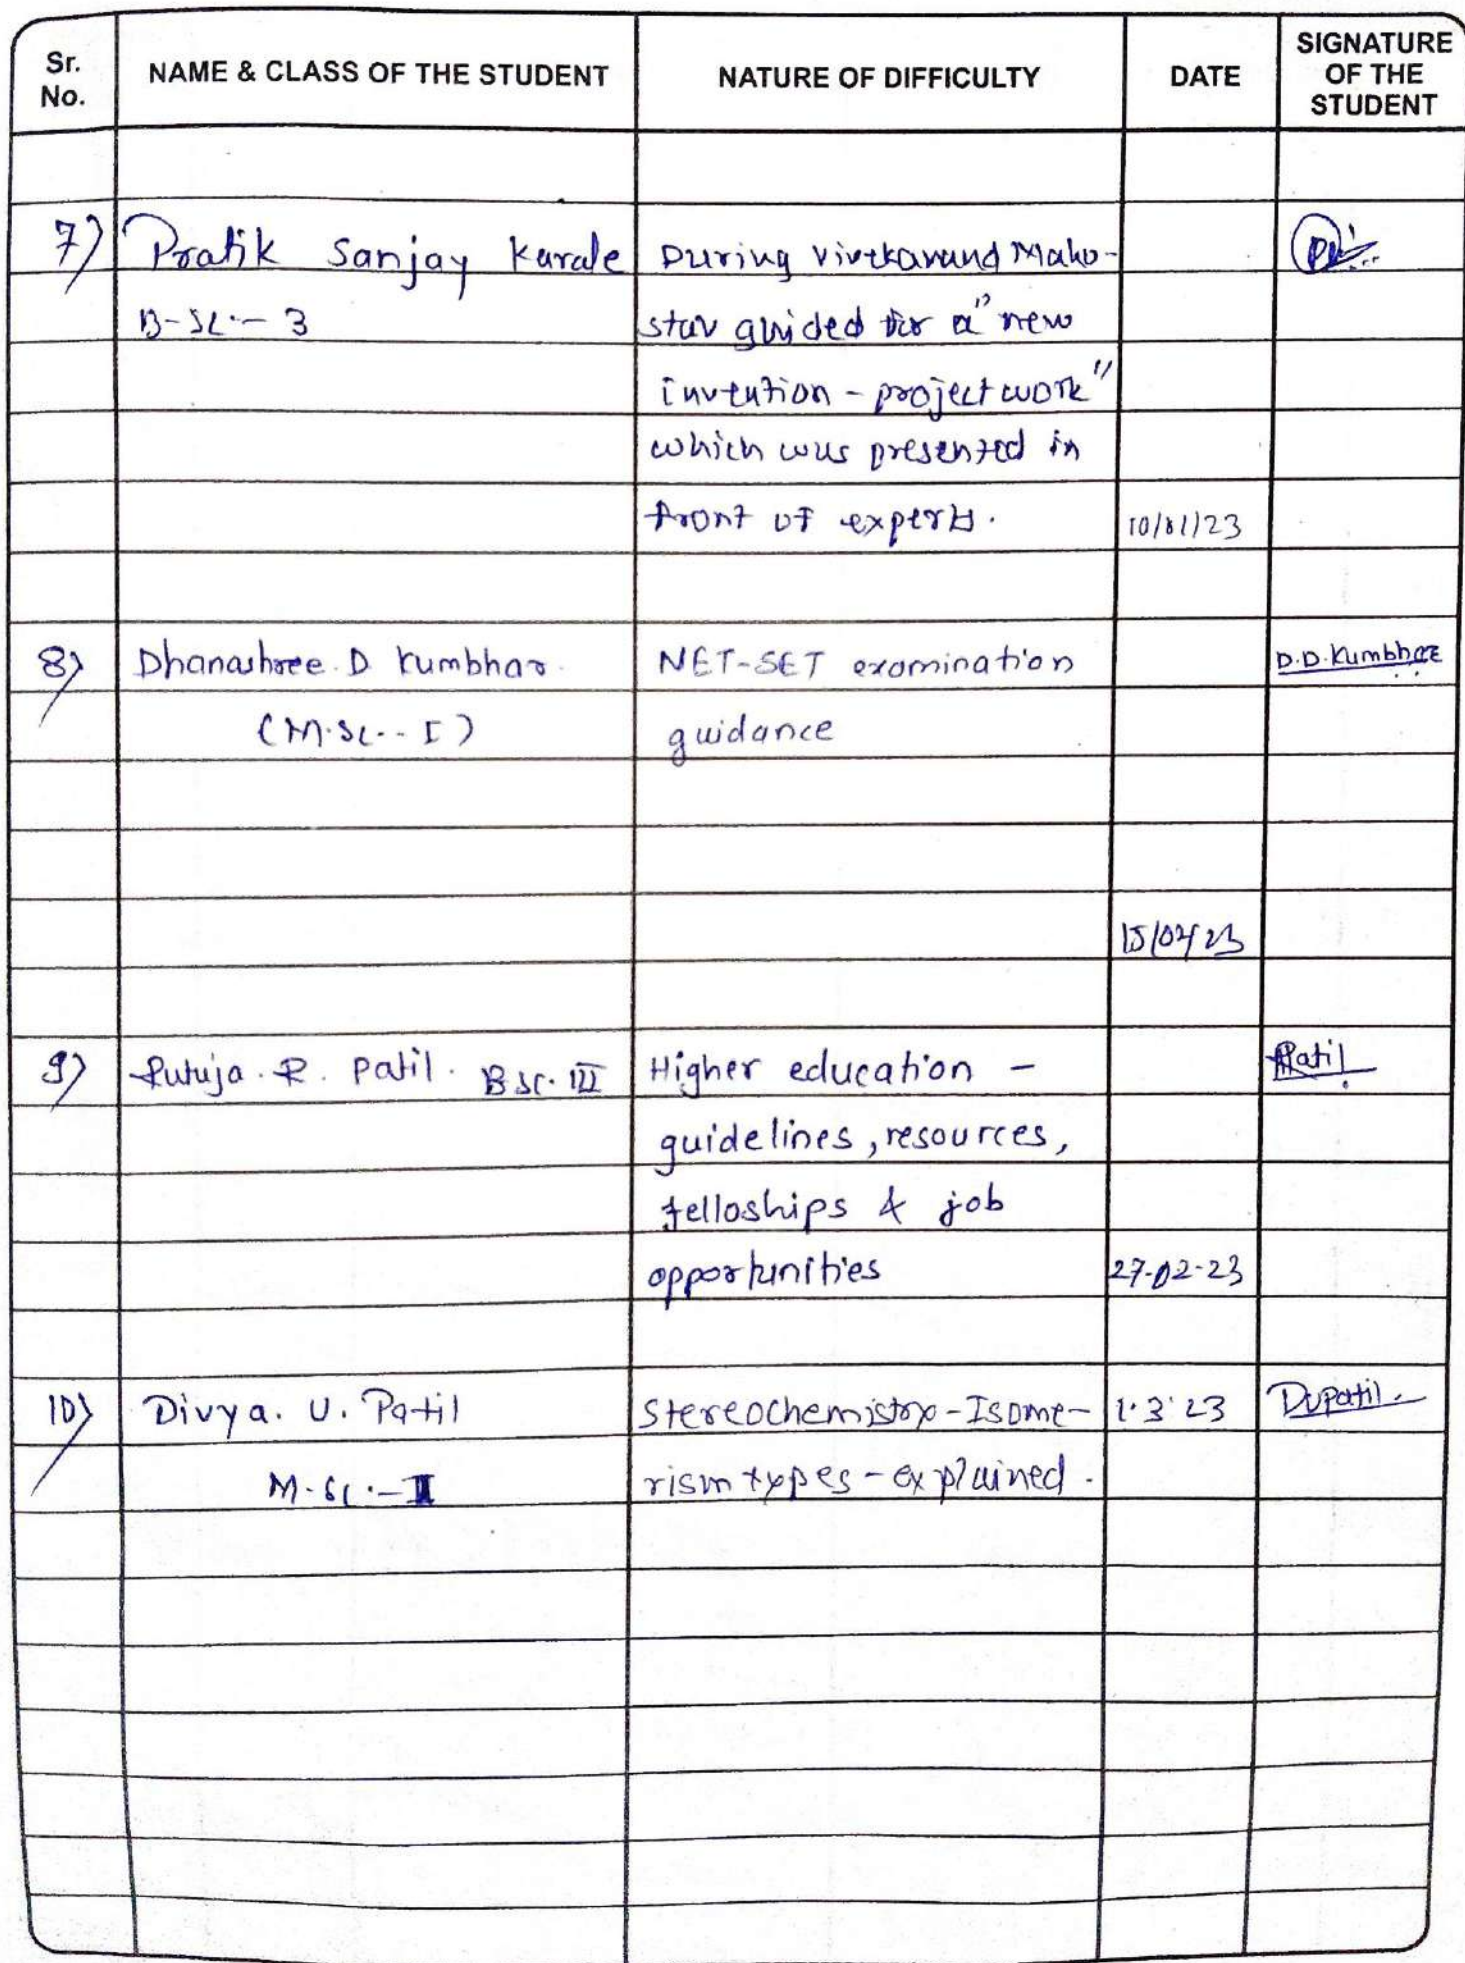 Sr. No. NAME & CLASS OF THE STUDENT NATURE OF DIFFICULTY DATE SIGNATURE OF THE STUDENT
7) Pratik Sanjay Karale During Vivekanand Maho-
B-Sc.- 3 stav guided for a "new
invention - project work"
which was presented in
front of experts. 10/01/23
8) Dhanashree. D Kumbhar. NET-SET examination D.D.Kumbhar
(M.Sc.- I) guidance
15/02/23
9) Rutuja. R. Patil. BSc. III Higher education - RPatil
guidelines, resources,
felloships & job
opportunities 27-02-23
10) Divya. U. Patil Stereochemistry-Isome- 1.3.23 DUPatil.
M.Sc.-II rism types - explained.